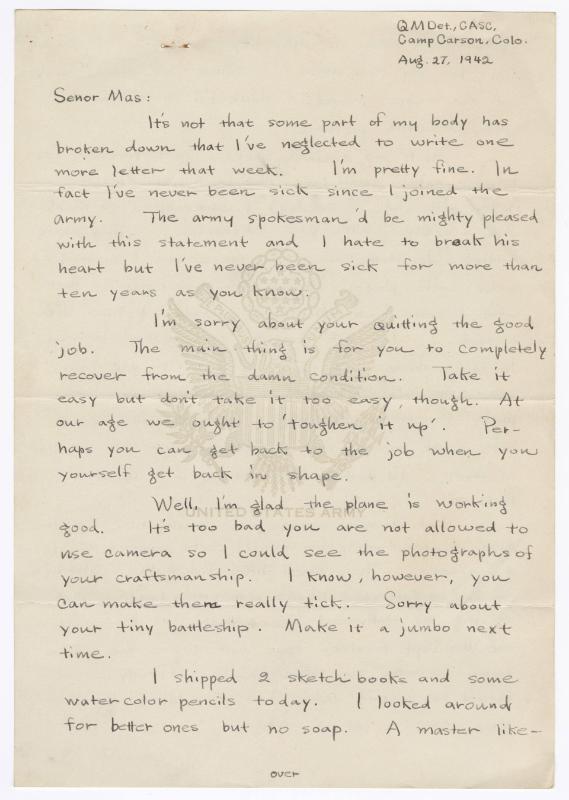 QM Det., CASC,
Camp Carson, Colo.
Aug. 27, 1942
Senor Mas:
It's not that some part of my body has
broken down that I've neglected to write one
more letter that week. I'm pretty fine. In
fact I've never been sick since I joined the
army. The army spokesman 'd be mighty pleased
with this statement and I hate to break his
heart but I've never been sick for more than
ten years as you know.
I'm sorry about your quitting the good
job. The main thing is for you to completely
recover from the damn condition. Take it
easy but don't take it too easy, though. At
our age we ought to 'toughen it up'. Per-
haps you can get back to the job when you
yourself get back in shape.
Well, I'm glad the plane is working
UNITED STATES ARMY
good. It's too bad you are not allowed to
use camera so I could see the photographs of
your craftsmanship. I know, however, you
can make them really tick. Sorry about
your tiny battleship. Make it a jumbo next
time.
I shipped 2 sketch books and some
water color pencils today. I looked around
for better ones but no soap. A master like-
over